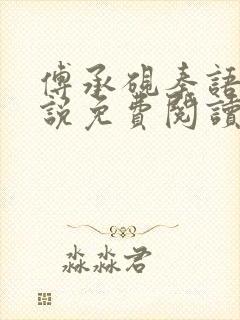 傅承硯秦語
說免費閱讀
淼淼君